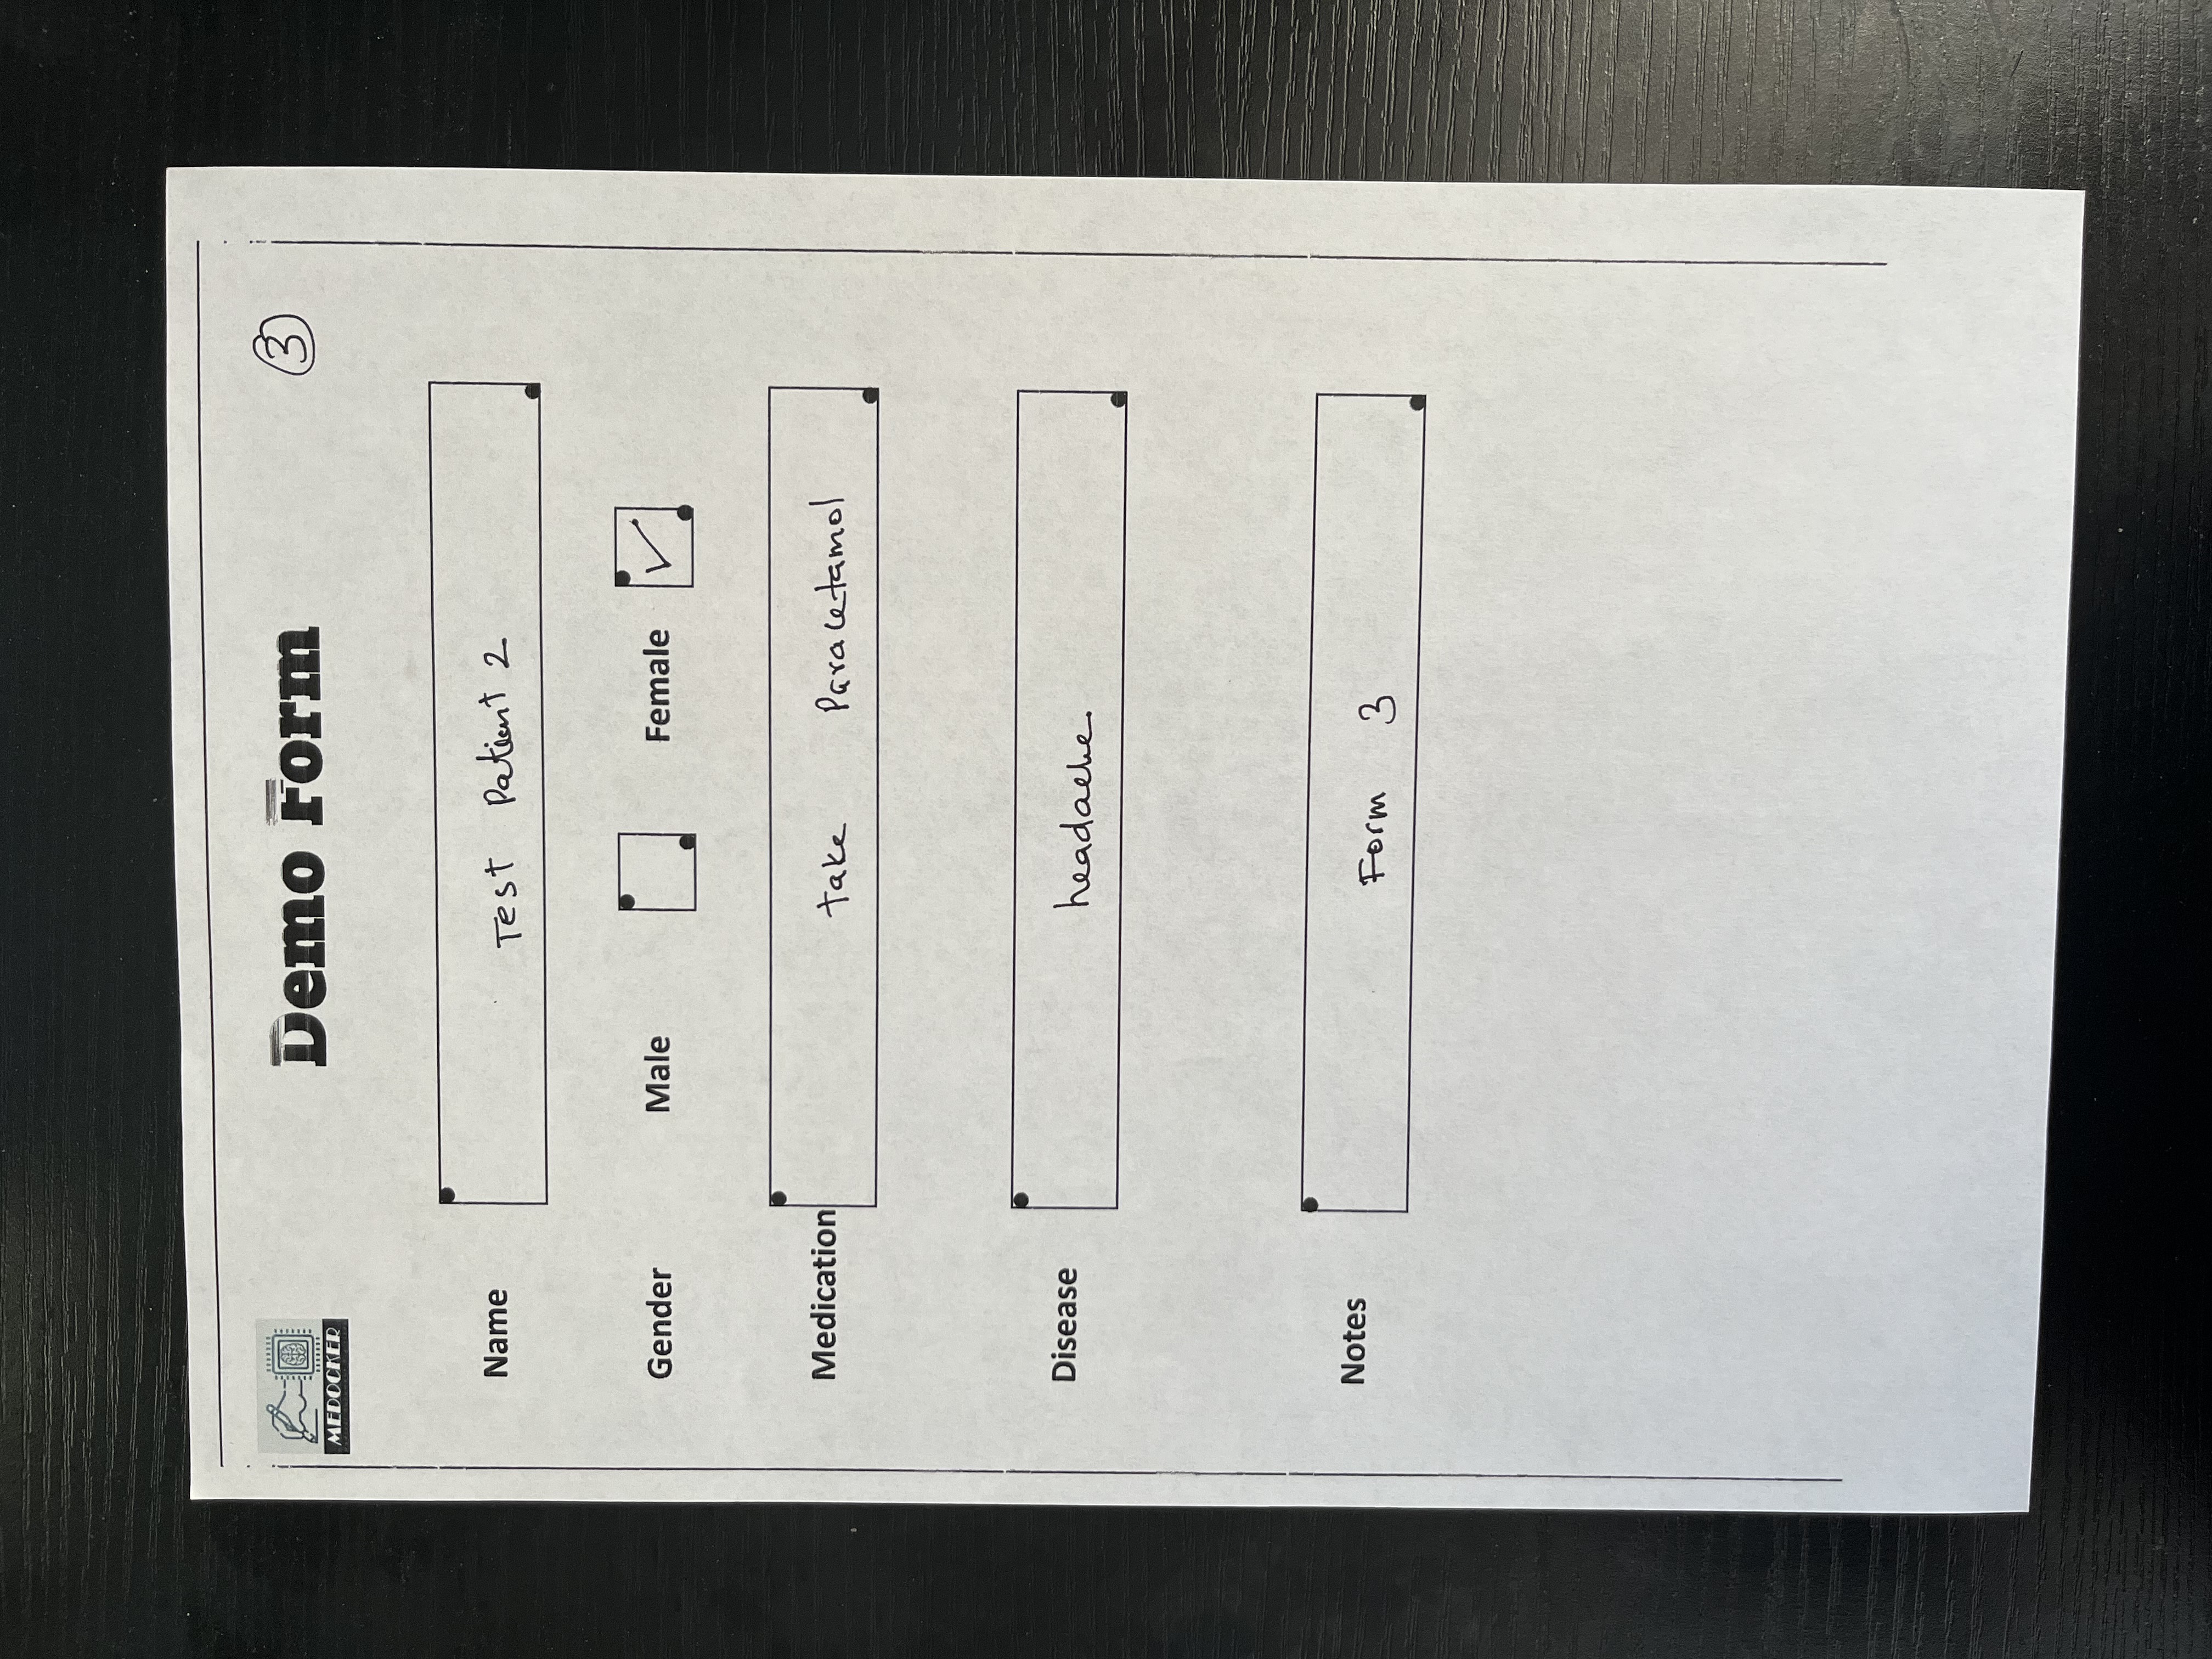 MEDOCKER
Demo Form
3
Name Test Patient 2
Gender Male Female
Medication take Paracetamol
Disease headache.
Notes Form 3